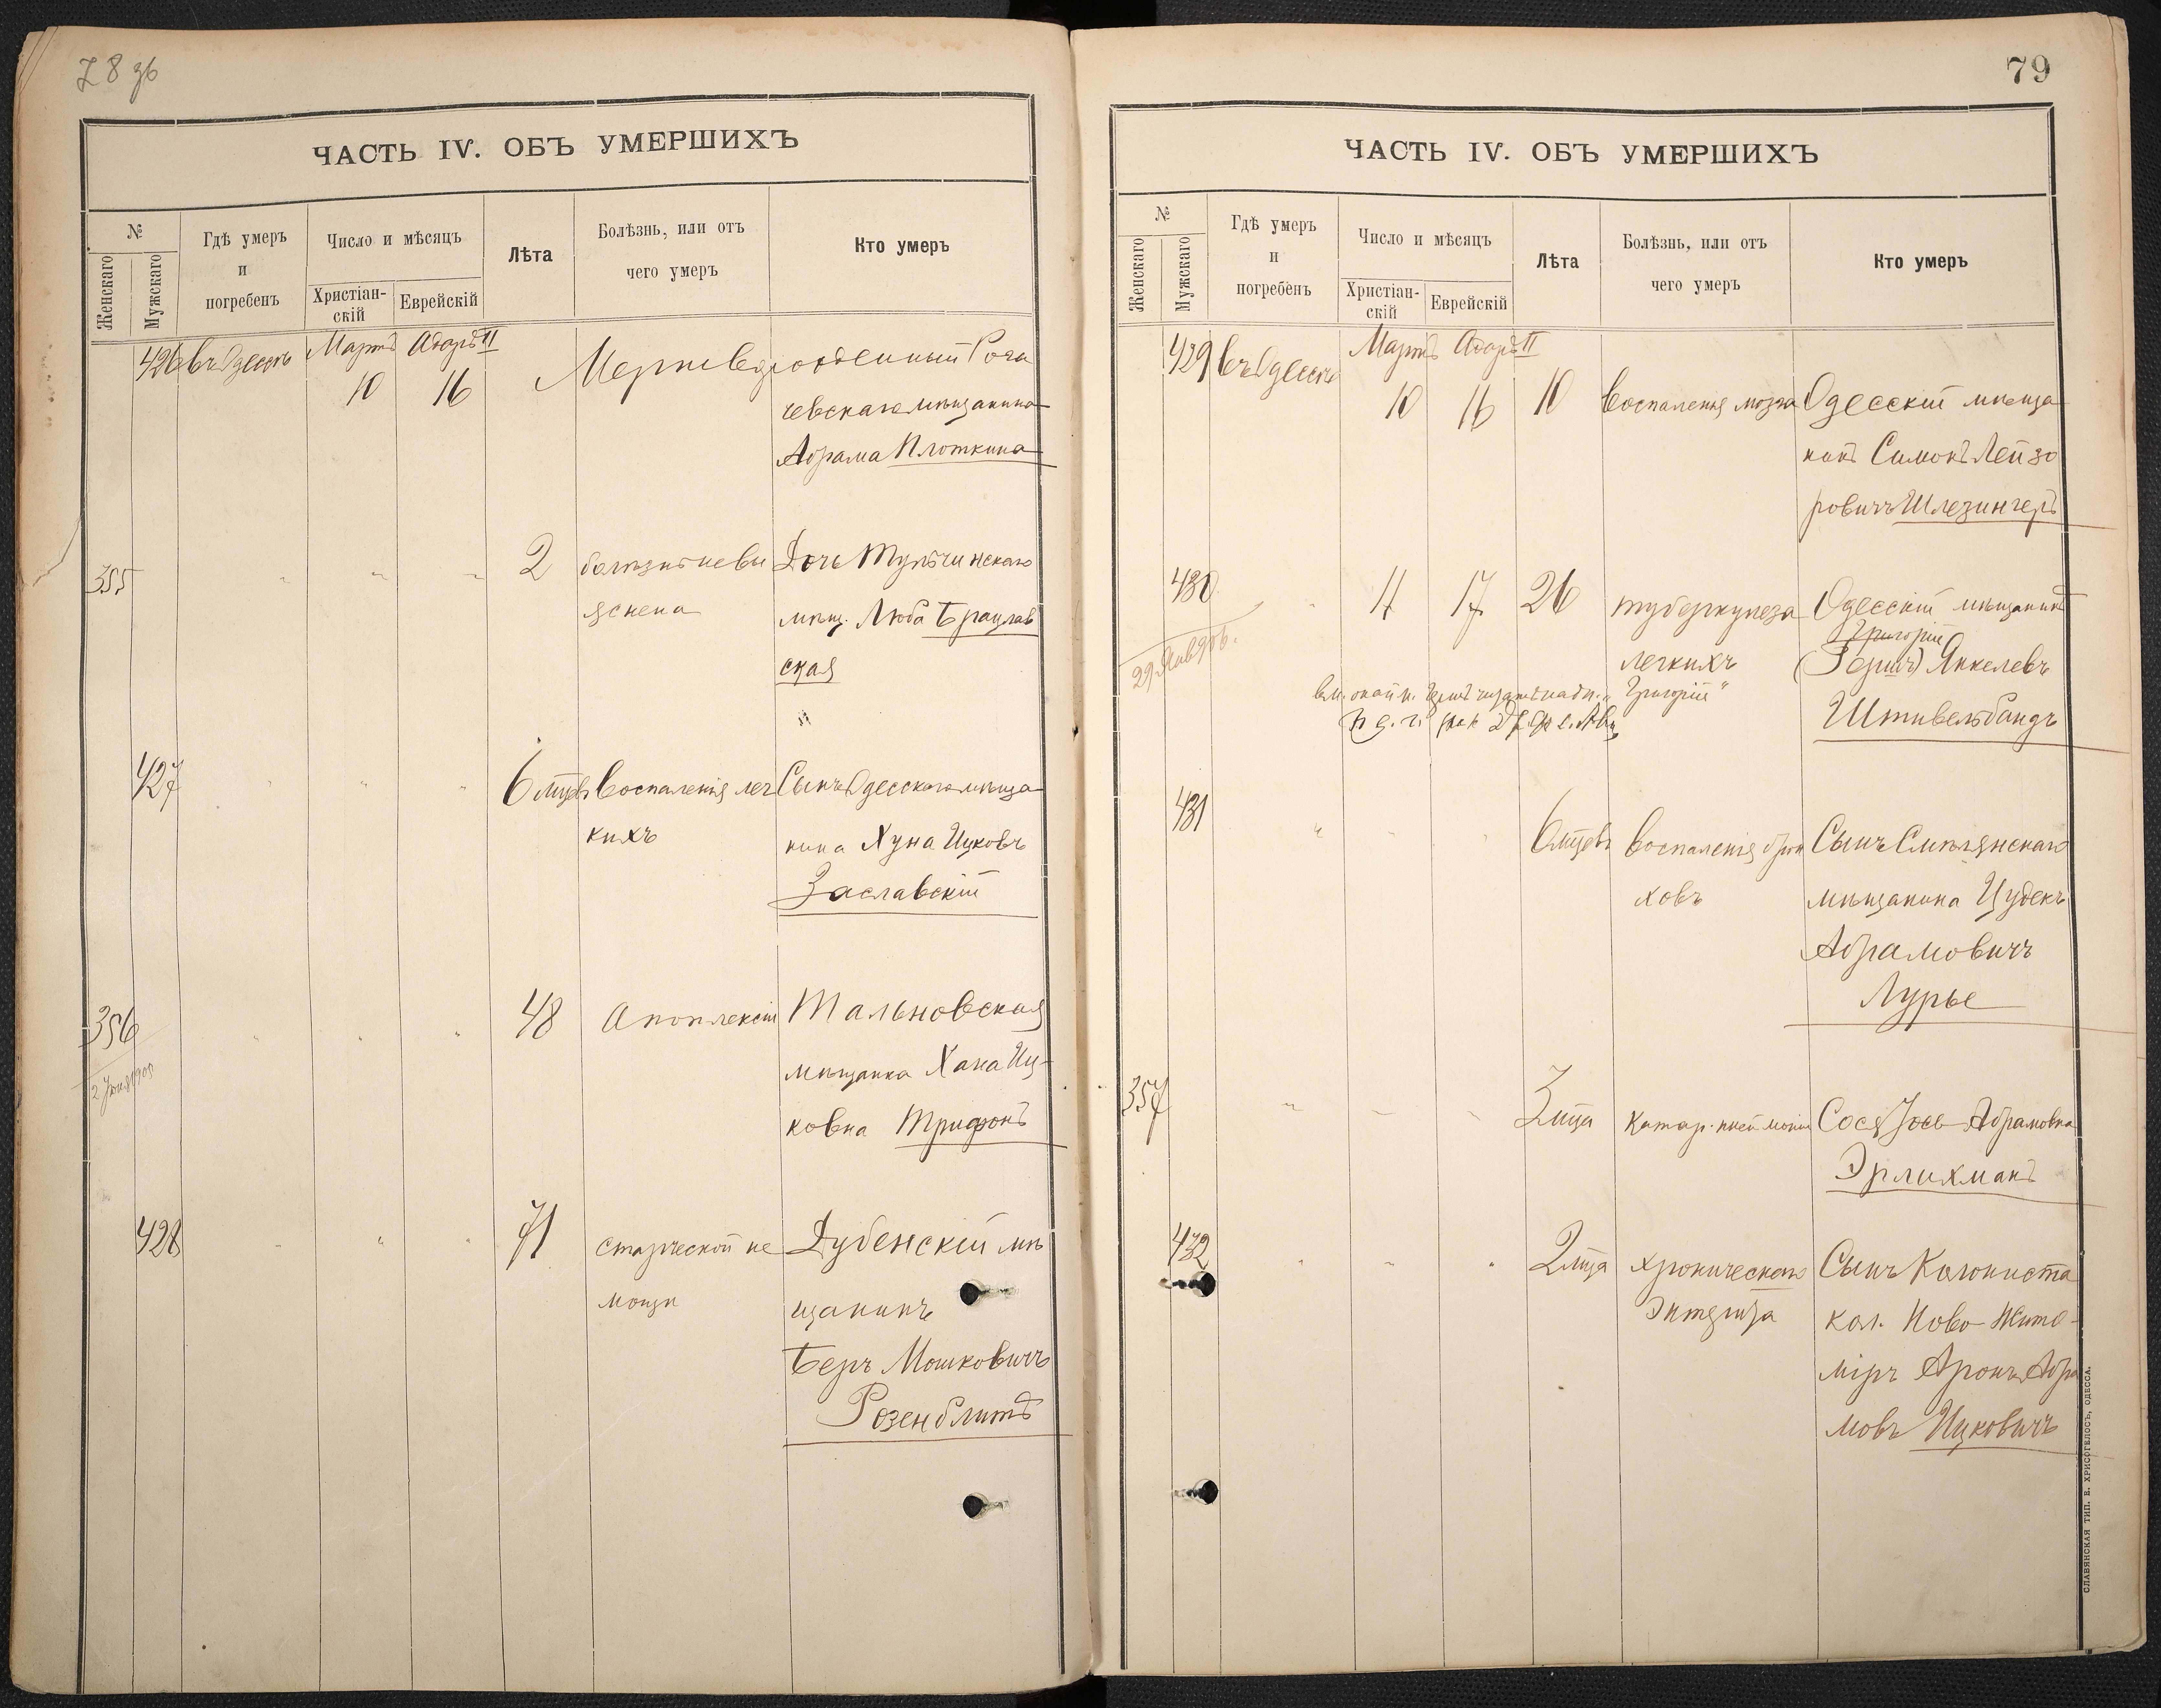 78 зв
ЧАСТЬ IV. ОБЪ УМЕРШИХЪ
№
Женскаго
Мужскаго
Гдѣ умеръ
и
погребенъ
Число и мѣсяцъ
Христіан-
скій
Еврейскій
Лѣта
Болѣзнь, или отъ
чего умеръ
Кто умеръ
426 въ Одессѣ Мартъ Адаръ II Мертворожденный Рога
10 16 чевскаго мѣщанина
Абрама Плоткина
355 " " " 2 болѣзнь невы Дочь Тульчинскаго
яснена мѣщ. Люба Брацлав
ская
427 " " " 6 мцевъ Воспаленія лег Сынъ Одесскаго мѣща
кихъ нина Хуна Ицковъ
Заславскій
356 " " " 48 Апоплексіи Тальновская
2 Іюня 1905 мѣщанка Хана Иц-
ковна Трифонъ
428 " " " 71 старческой не Дубенскій мѣ
мощи щанинъ
Беръ Мошковичъ
Розенблитъ
79
ЧАСТЬ IV. ОБЪ УМЕРШИХЪ
№
Женскаго
Мужскаго
Гдѣ умеръ
и
погребенъ
Число и мѣсяцъ
Христіан-
скій
Еврейскій
Лѣта
Болѣзнь, или отъ
чего умеръ
Кто умеръ
429 въ Одессѣ Мартъ Адаръ II
10 16 10 Воспаленія мозга Одесскій мѣща
нинъ Симонъ Лейзо
ровичъ Шлезингеръ
430 " 11 17 26 туберкулеза Одесскій мѣщанинъ
Григорій
29 Янв 906. легкихъ (Гершъ) Янкелевъ
"Григорій"
Штивельбандъ
431 " " " 6 мцевъ Воспаленія брон Сынъ Смѣлянскаго
ховъ мѣщанина Цудекъ
Абрамовичъ
Лурье
357 " " " 3 мца Катар. пнеймоніи Сося Іосъ Абрамовна
Эрлихманъ
432 " " " 2 мца хроническаго Сынъ Колониста
Энтерита кол. Ново-Жито-
міръ Аронъ Абра
мовъ Ицковичъ
СЛАВЯНСКАЯ ТИП. Е. ХРИСОГЕЛОСЪ, ОДЕССА.